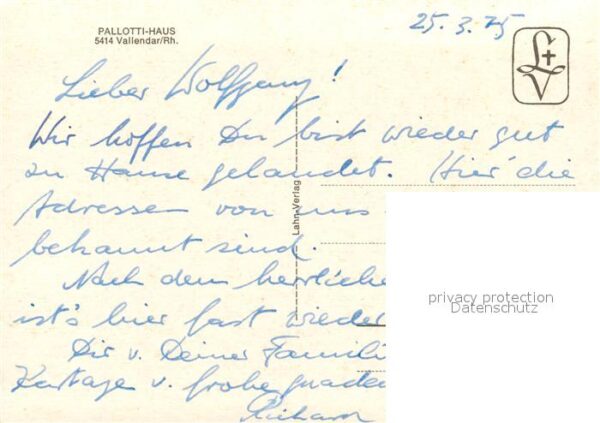 PALLOTTI-HAUS
5414 Vallendar/Rh.
25.3.75
L
V
Lieber Wolfgang!
Wir hoffen Du bist wieder gut
zu Hause gelandet. Hier die
Adressen von uns
bekannt sind.
Nach dem herrliche
ist's hier fast wieder
Dir u. Deiner Famili
Kartage u. frohe gnade
Richard
Lahn-Verlag
privacy protection
Datenschutz